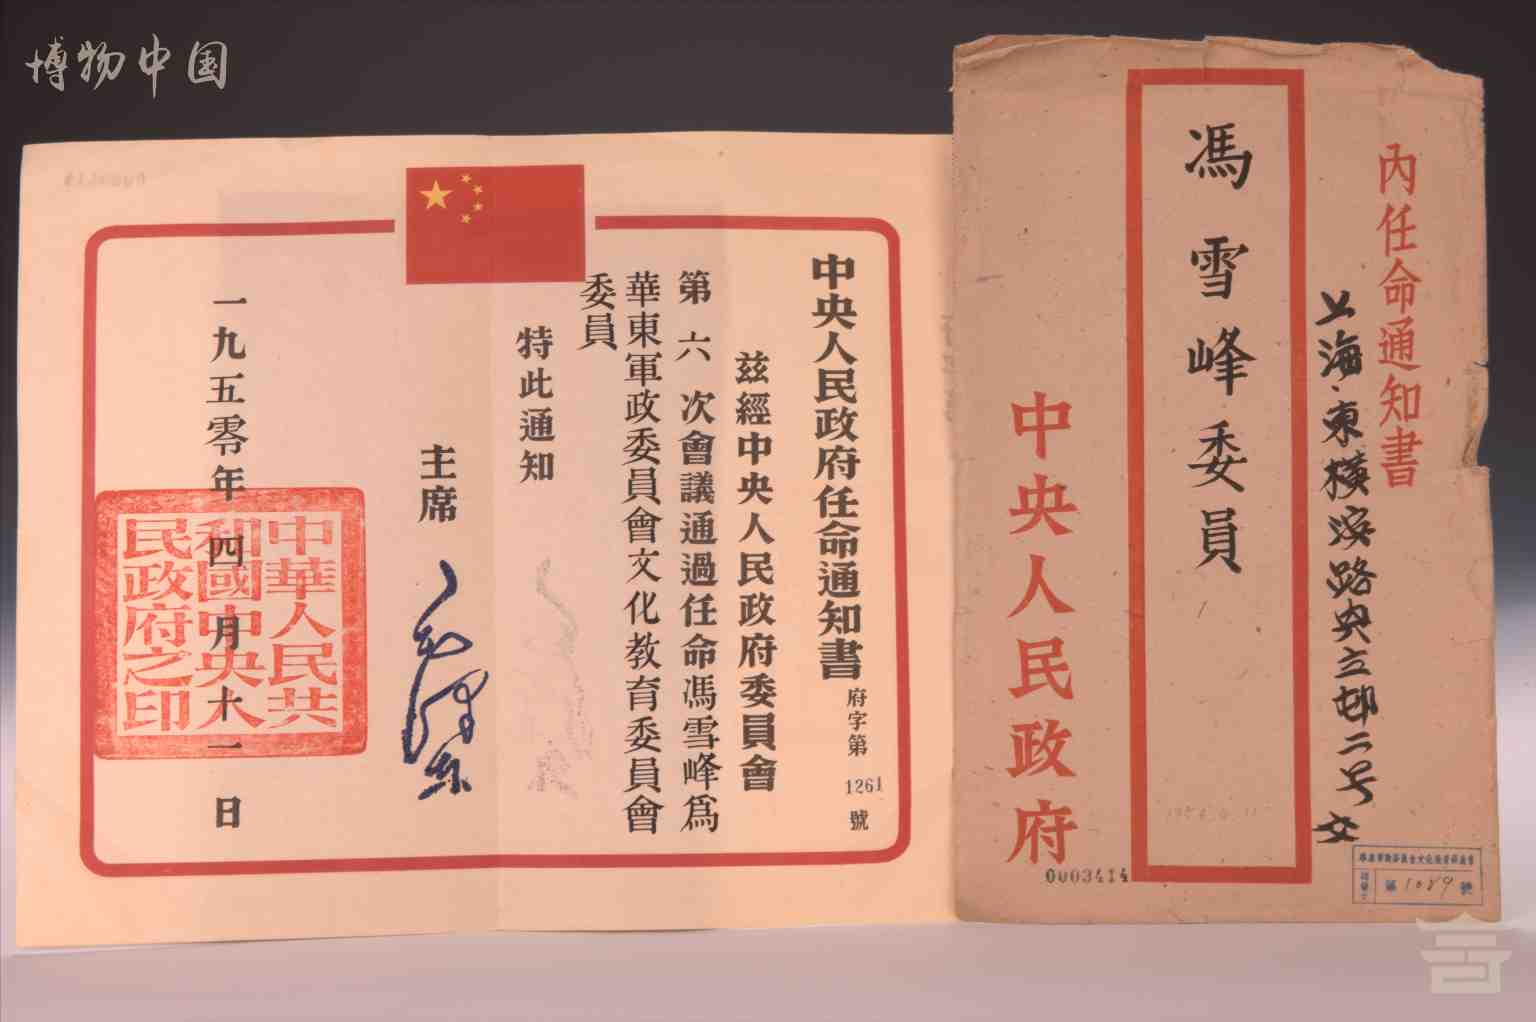 博物中国
中央人民政府任命通知書
府字第1261號
茲經中央人民政府委員會
第六次會議通過任命馮雪峰爲
華東軍政委員會文化教育委員會
委員
特此通知
主席
毛澤東
一九五零年四月十一日
中華人民共
和國中央人
民政府之印
內任命通知書
上海.東橫浜路
二号
馮雪峰委員
中央人民政府
0003414
第1089號